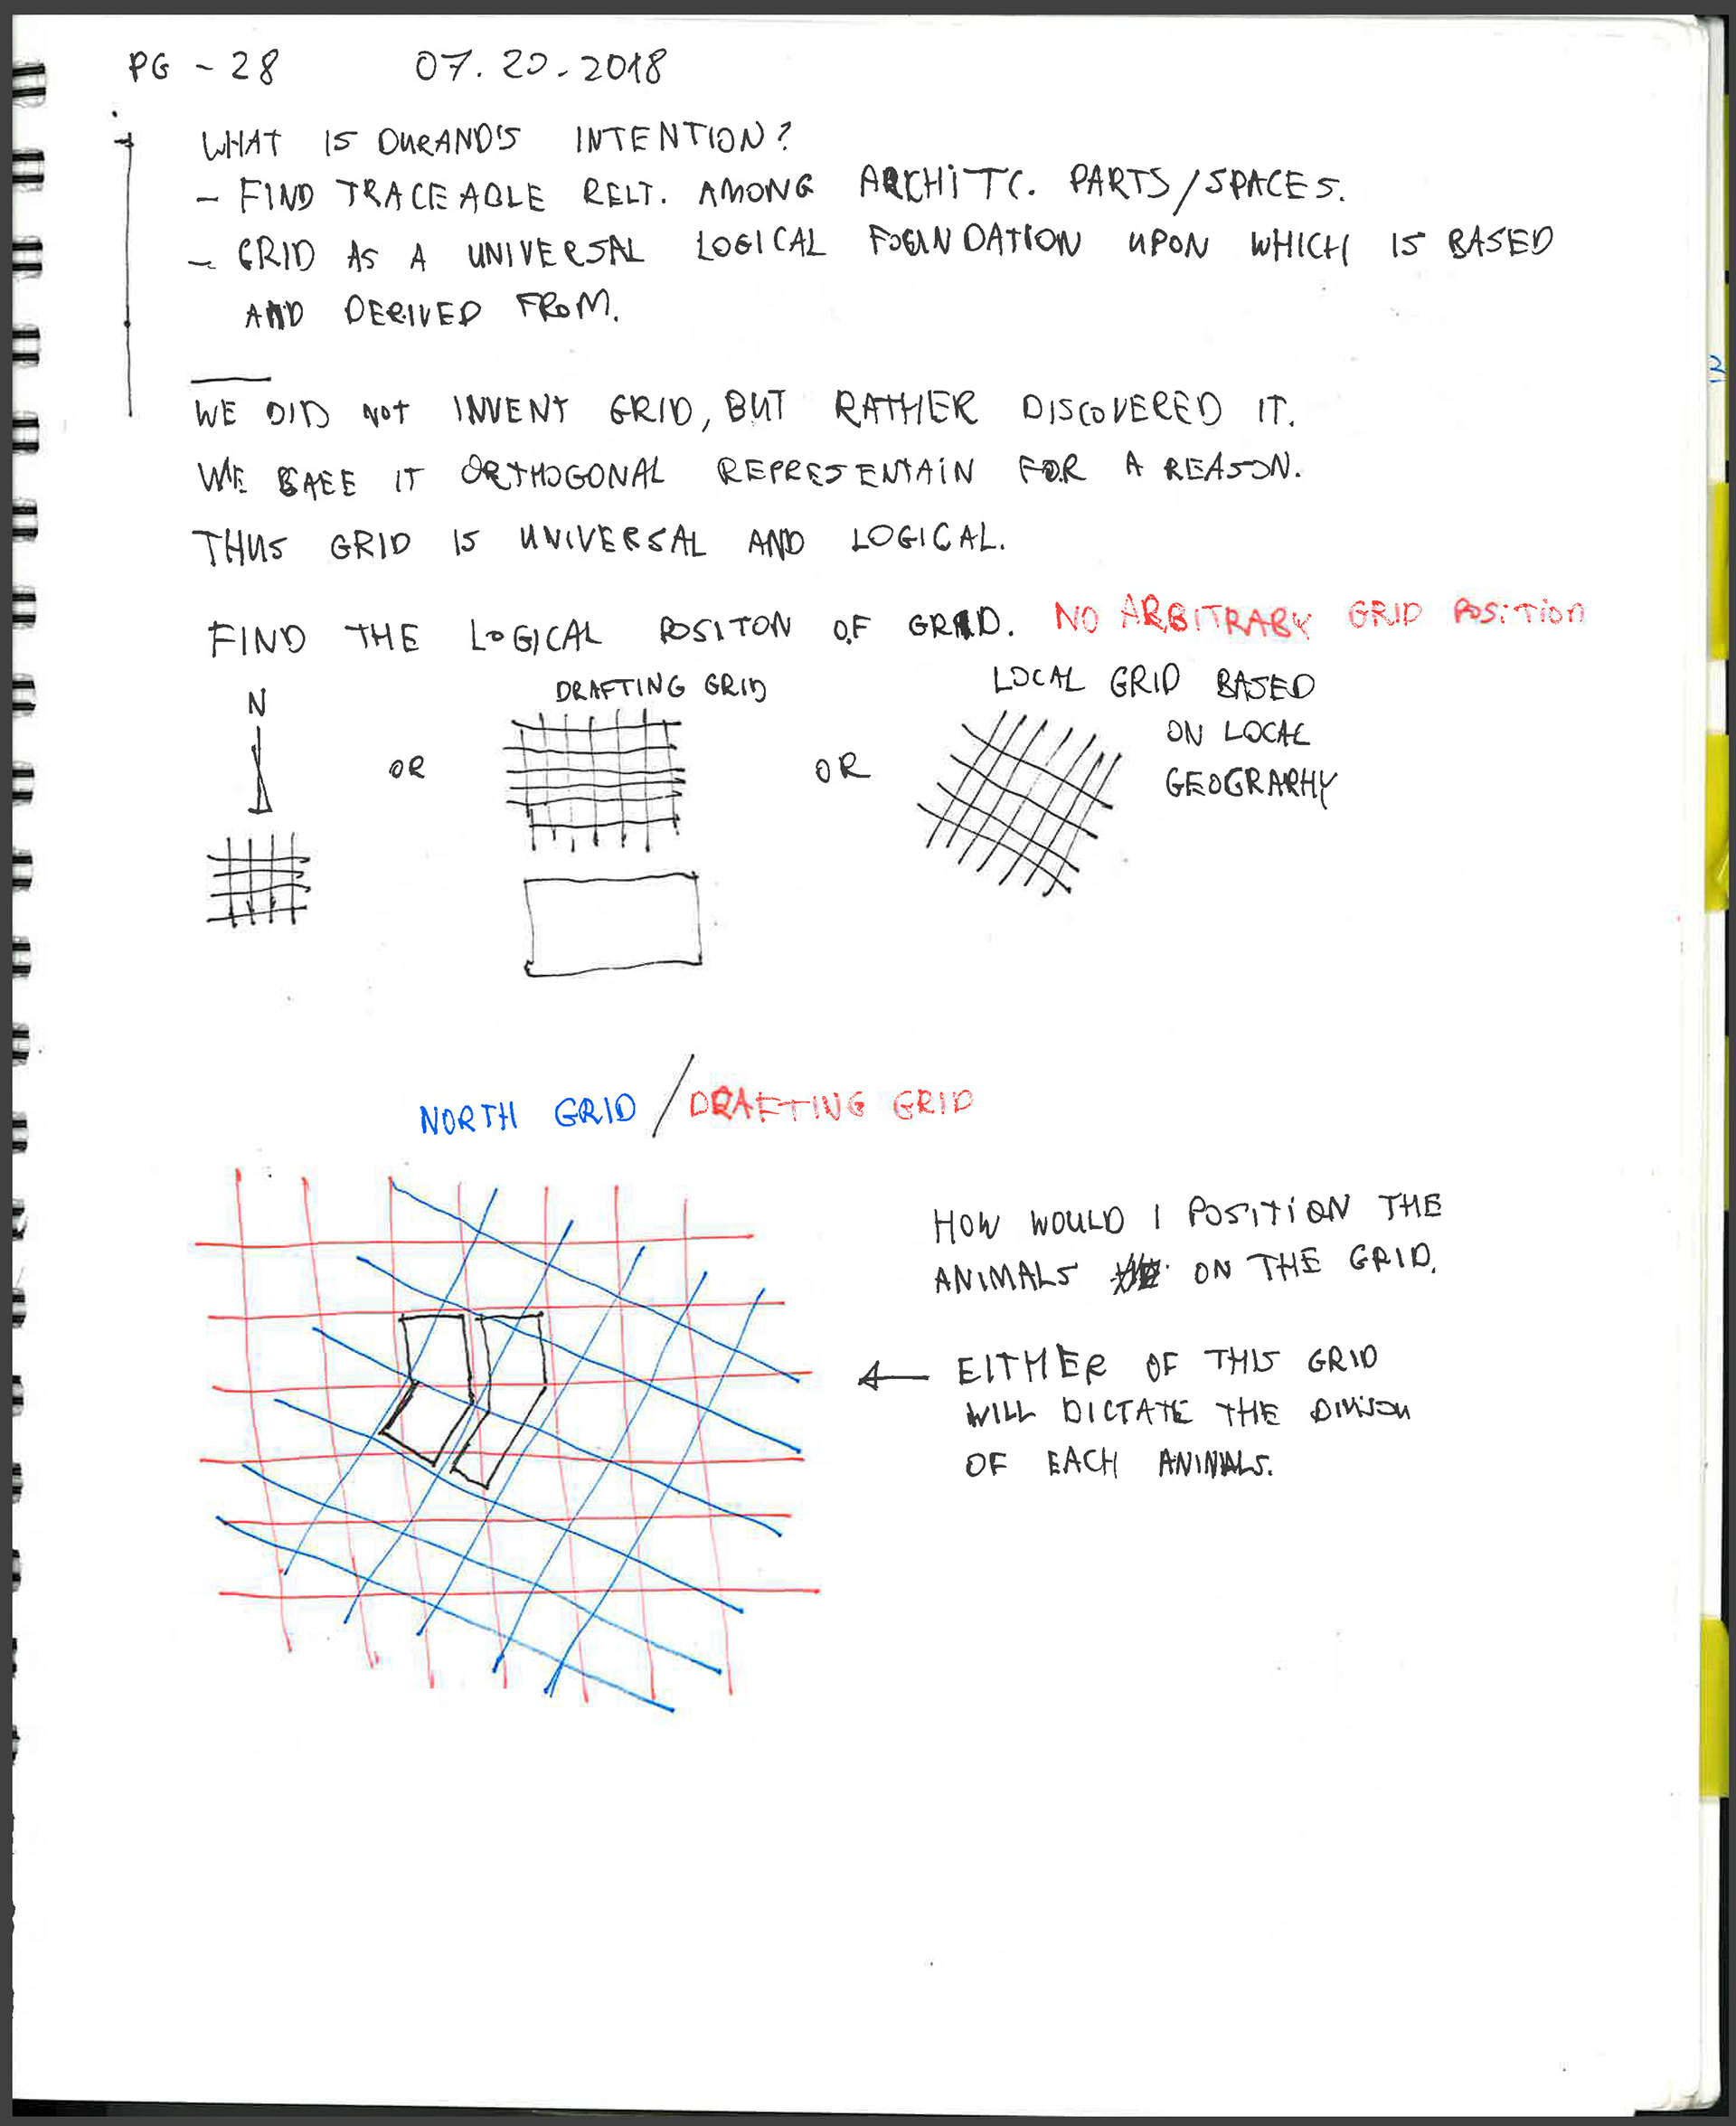 PG - 28 07.20.2018
WHAT IS DURAND'S INTENTION?
- FIND TRACEABLE RELT. AMONG ARCHITC. PARTS/SPACES.
- GRID AS A UNIVERSAL LOGICAL FOUNDATION UPON WHICH IS BASED
AND DERIVED FROM.
WE DID NOT INVENT GRID, BUT RATHER DISCOVERED IT.
WE IT ORTHOGONAL REPRESENTAIN FOR A REASON.
THUS GRID IS UNIVERSAL AND LOGICAL.
FIND THE LOGICAL POSITON OF GRID. NO ARBITRARY GRID POSITION
N
OR
DRAFTING GRID
OR
LOCAL GRID BASED
ON LOCAL
GEOGRAPHY
NORTH GRID / DRAFTING GRID
HOW WOULD I POSITION THE
ANIMALS ON THE GRID.
← EITHER OF THIS GRID
WILL DICTATE THE
OF EACH ANIMALS.